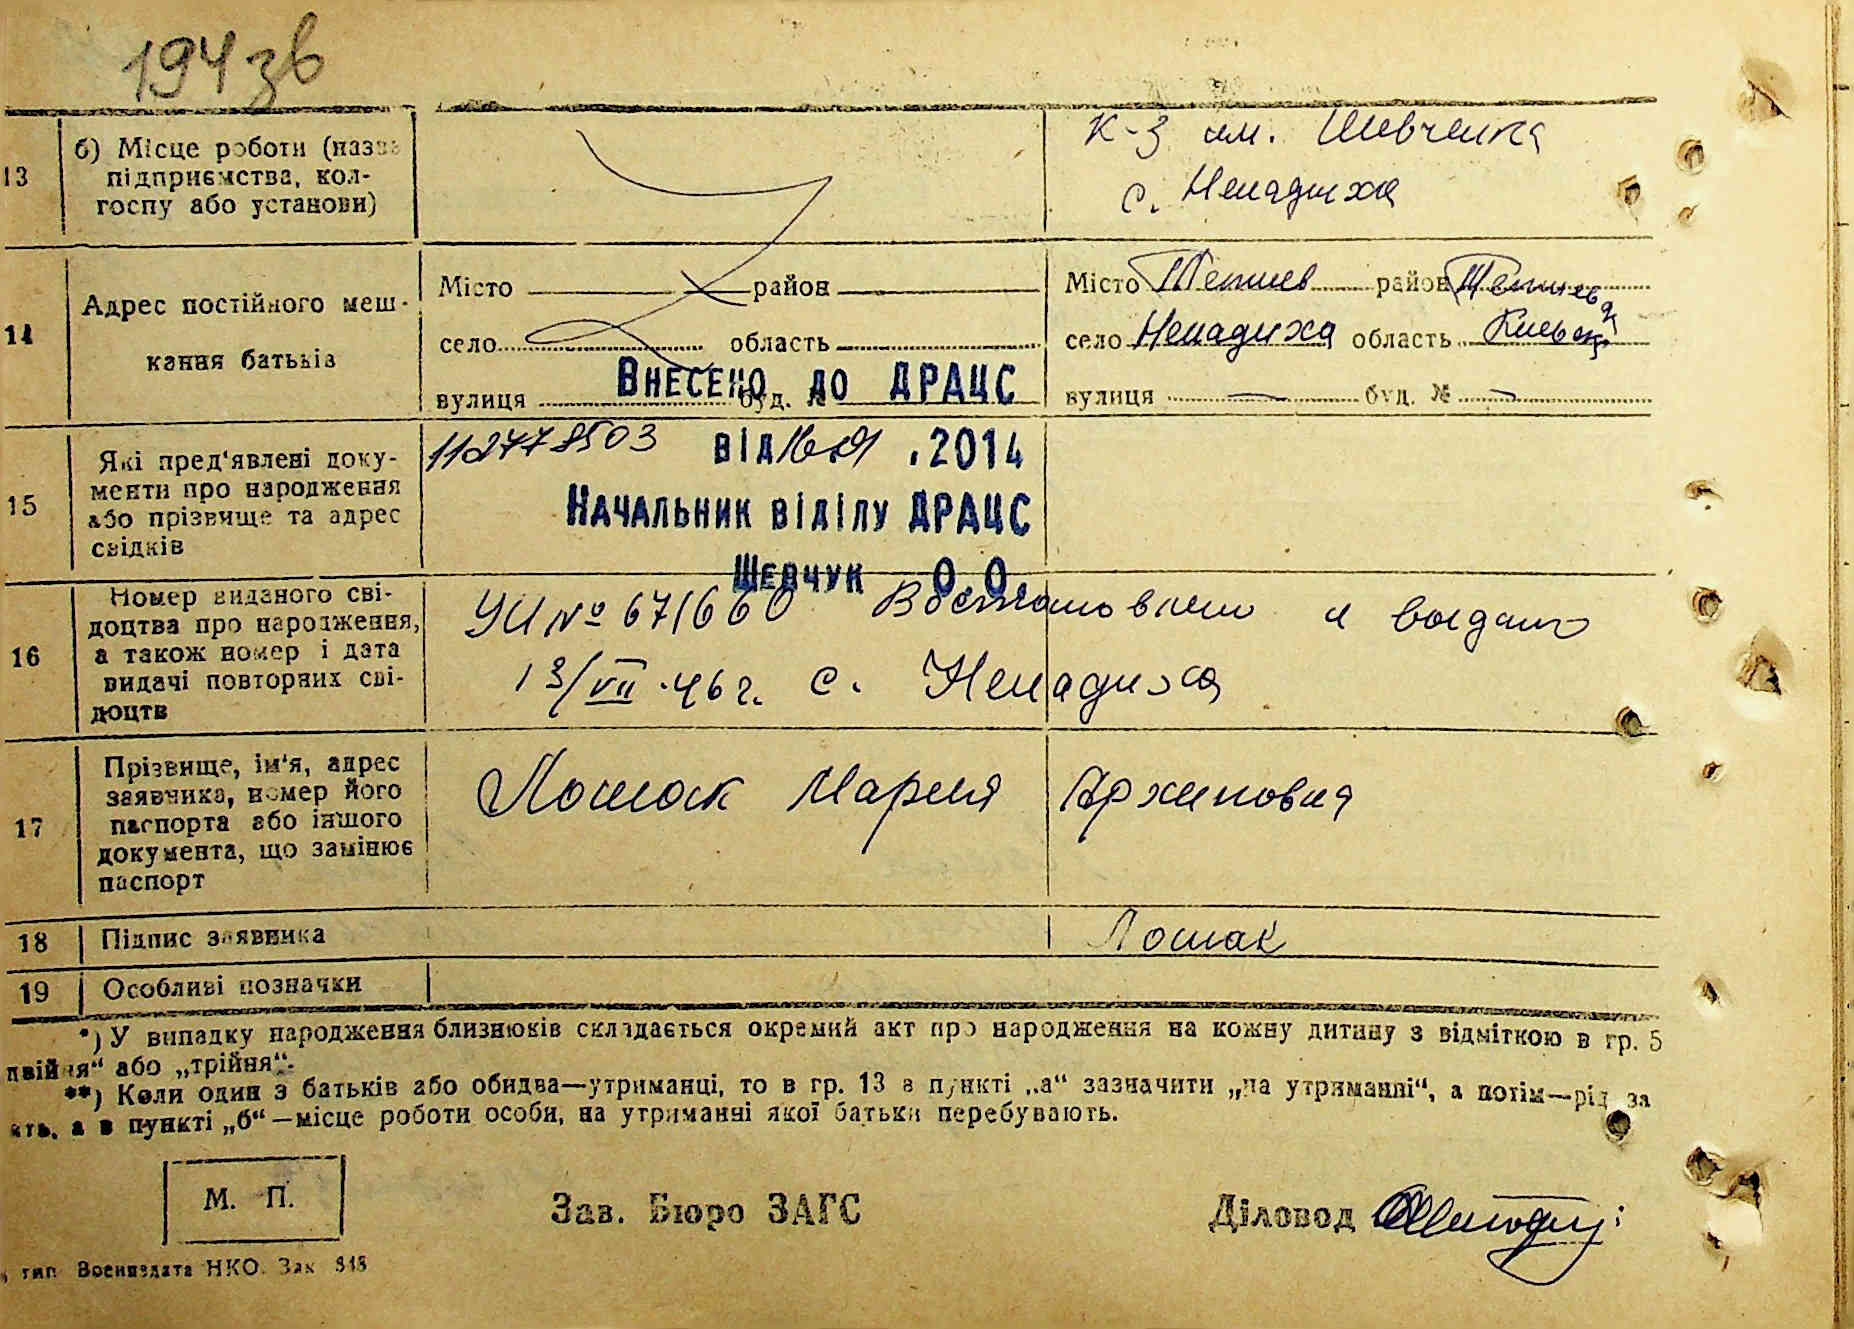 194 зв
13
б) Місце роботи (назва
підприємства, кол-
госпу або установи)
К-з им. Шевченка
с. Ненадиха
14
Адрес постійного меш-
кання батьків
Місто район
село область
вулиця буд. №
Місто Тетиев район Тетиев
село Ненадиха область Киевск
вулиця — буд. № —
Внесено до ДРАЦС
112778503 від 16.01.2014
Начальник відділу ДРАЦС
Шевчук О.О.
15
Які пред'явлені доку-
менти про народження
або прізвище та адрес
свідків
16
Номер виданого сві-
доцтва про народження,
а також номер і дата
видачі повторних сві-
доцтв
УИ № 671660 Востановлено и выдано
13/VII.46 г. с. Ненадиха
17
Прізвище, ім'я, адрес
заявника, номер його
паспорта або іншого
документа, що замінює
паспорт
Лошак Мария Архиповна
18 Підпис заявника Лошак
19 Особливі позначки
*) У випадку народження близнюків складається окремий акт про народження на кожну дитину з відміткою в гр. 5
двійня“ або „трійня“.
**) Коли один з батьків або обидва—утриманці, то в гр. 13 в пункті „а“ зазначити „на утриманні“, а потім—рід за
ять, а в пункті „б“—місце роботи особи, на утриманні якої батьки перебувають.
М. П.
Зав. Бюро ЗАГС
Діловод
тип Воениздата НКО. Зак 848